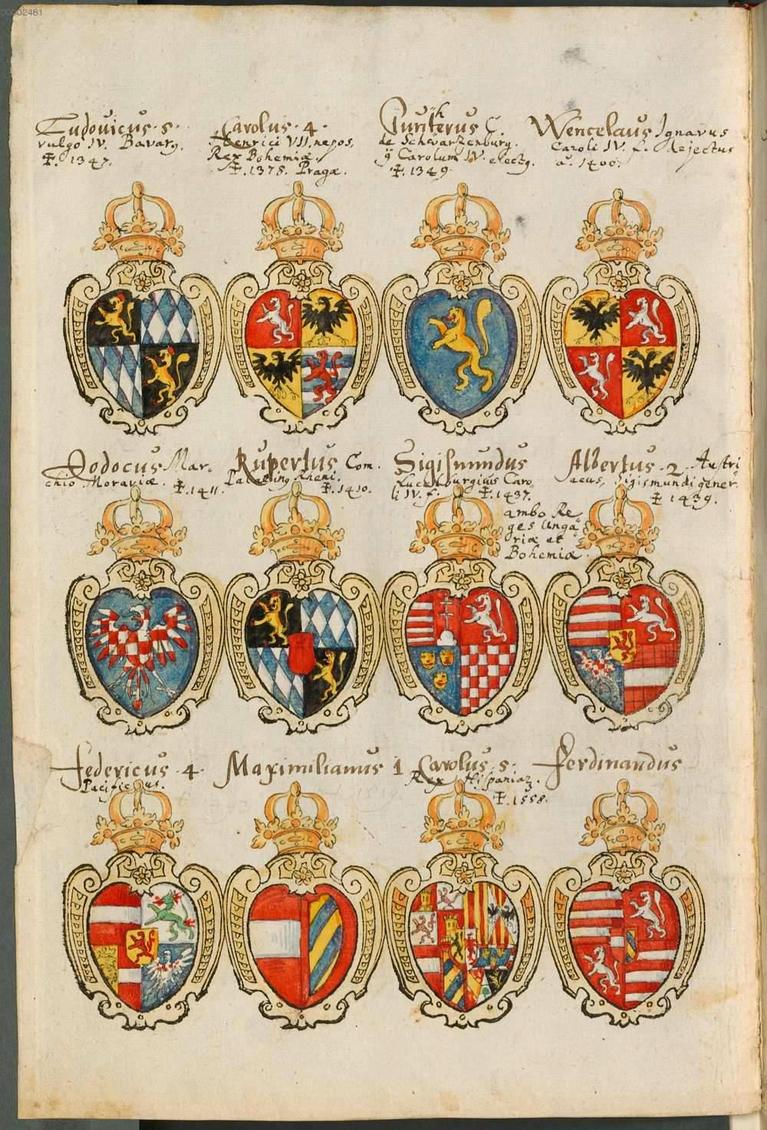 Ludovicus · 5 ·
vulgo IV. Bavarg.
☩. 1347.
Carolus · 4 ·
Henrici VII. nepos.
Rex Bohemiæ.
☩. 1378. Pragæ.
Guntherus C.
de Schwartzenburg.
Carolum IV. electg.
☩. 1349.
Wencelaus Ignavus
Caroli IV. f. Rejectus
aº. 1400.
Jodocus Mar-
chio Moraviæ. ☩. 1411.
Rupertus Com.
Palating Rheni.
☩. 1410.
Sigismundus
Lucelburgius Caro
li IV. f. ☩. 1437.
ambo Re
ges Unga
riæ et
Bohemiæ.
Albertus · 2 · Austri
acus, Sigismundi gener.
☩ 1439.
Federicus · 4 ·
Pacificus.
Maximilianus 1
Carolus · 5 ·
Rex Hispaniar.
☩. 1558.
Ferdinandus